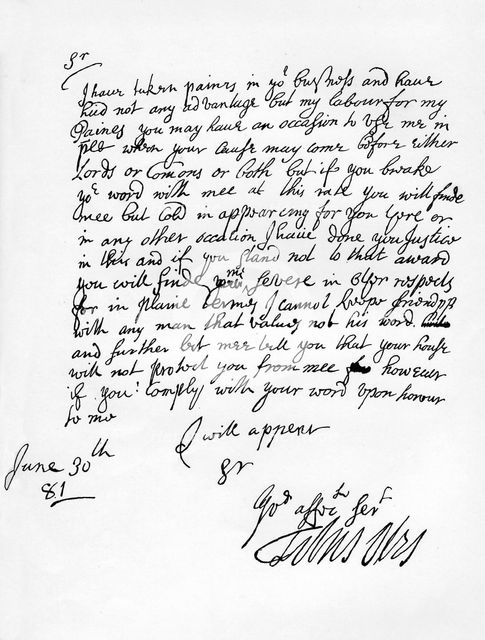 Sr
I haue taken paines in yor busyness and haue
had not any advantage but my labour for my
Paines you may haue an occasion to vse me in
when your Cause may come before either
Lords or Comons or both but if you breake
yor word with mee at this rate you will finde
mee but Cold in appearing for you here or
in any other occation I haue done you Justice
in this and if you stand not to that award
you will finde mee severe in other respects
for in plaine termes I cannot keepe friendsp
with any man that values not his word
and further let mee tell you that your house
will not protect you from mee however
if you Comply with your word vpon honour
to me
I will appear
Sr
June 30th
81
Yor affec te Servt